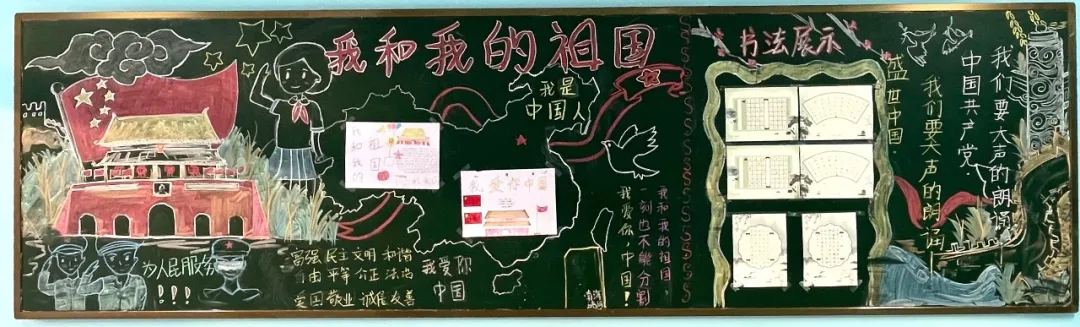 我和我的祖国
我是
中国人
我和我的
祖国
我爱你中国
为人民服务
!!!
富强 民主 文明 和谐
自由 平等 公正 法治
爱国 敬业 诚信 友善
我爱你
中国
我和我的祖国
一刻也不能分割
我爱你，中国!
书法展示
我们要大声的朗诵
中国共产党
我们要大声的朗诵
盛世中国